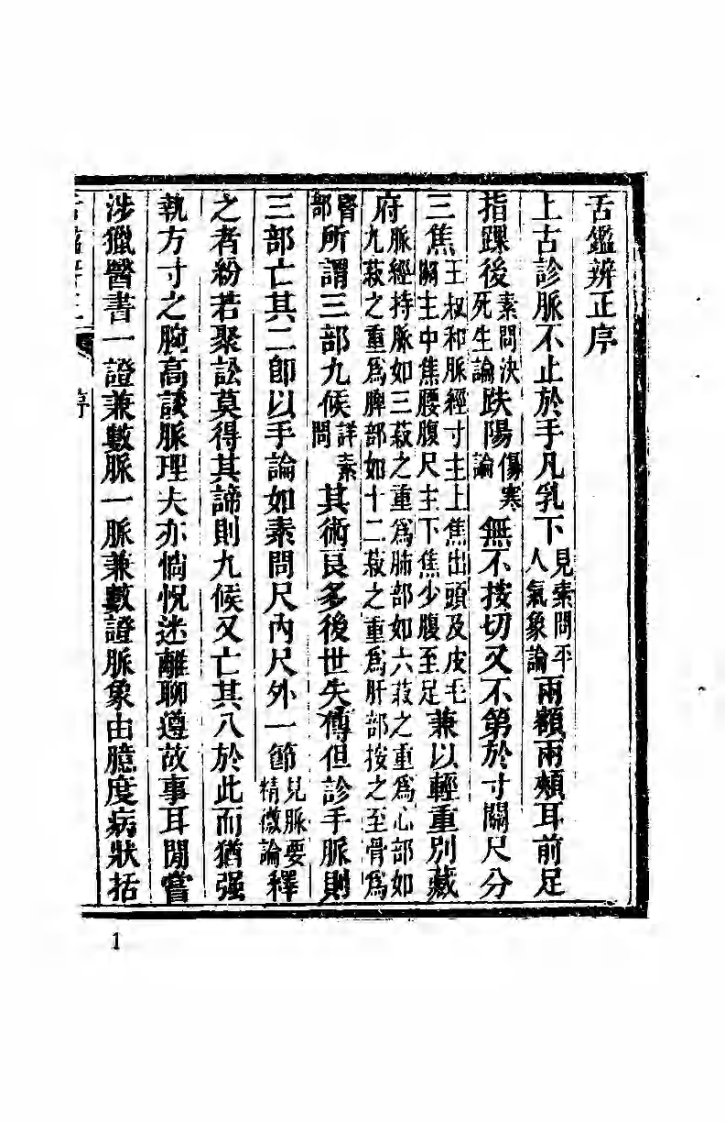 舌鑑辨正序
上古診脈不止於手凡乳下見素問平人氣象論兩額兩頰耳前足
指踝後素問決死生論趺陽傷寒論無不按切又不第於寸關尺分
三焦王叔和脈經寸主上焦出頭及皮毛關主中焦腰腹尺主下焦少腹至足兼以輕重別藏
府脈經持脈如三菽之重爲肺部如六菽之重爲心部如九菽之重爲脾部如十二菽之重爲肝部按之至骨爲
腎部所謂三部九候詳素問其術良多後世失傳但診手脈則
三部亡其二卽以手論如素問尺內尺外一節見脈要精微論釋
之者紛若聚訟莫得其諦則九候又亡其八於此而猶强
執方寸之腕高談脈理夫亦惝怳迷離聊遵故事耳閒嘗
涉獵醫書一證兼數脈一脈兼數證脈象由臆度病狀括
序
1